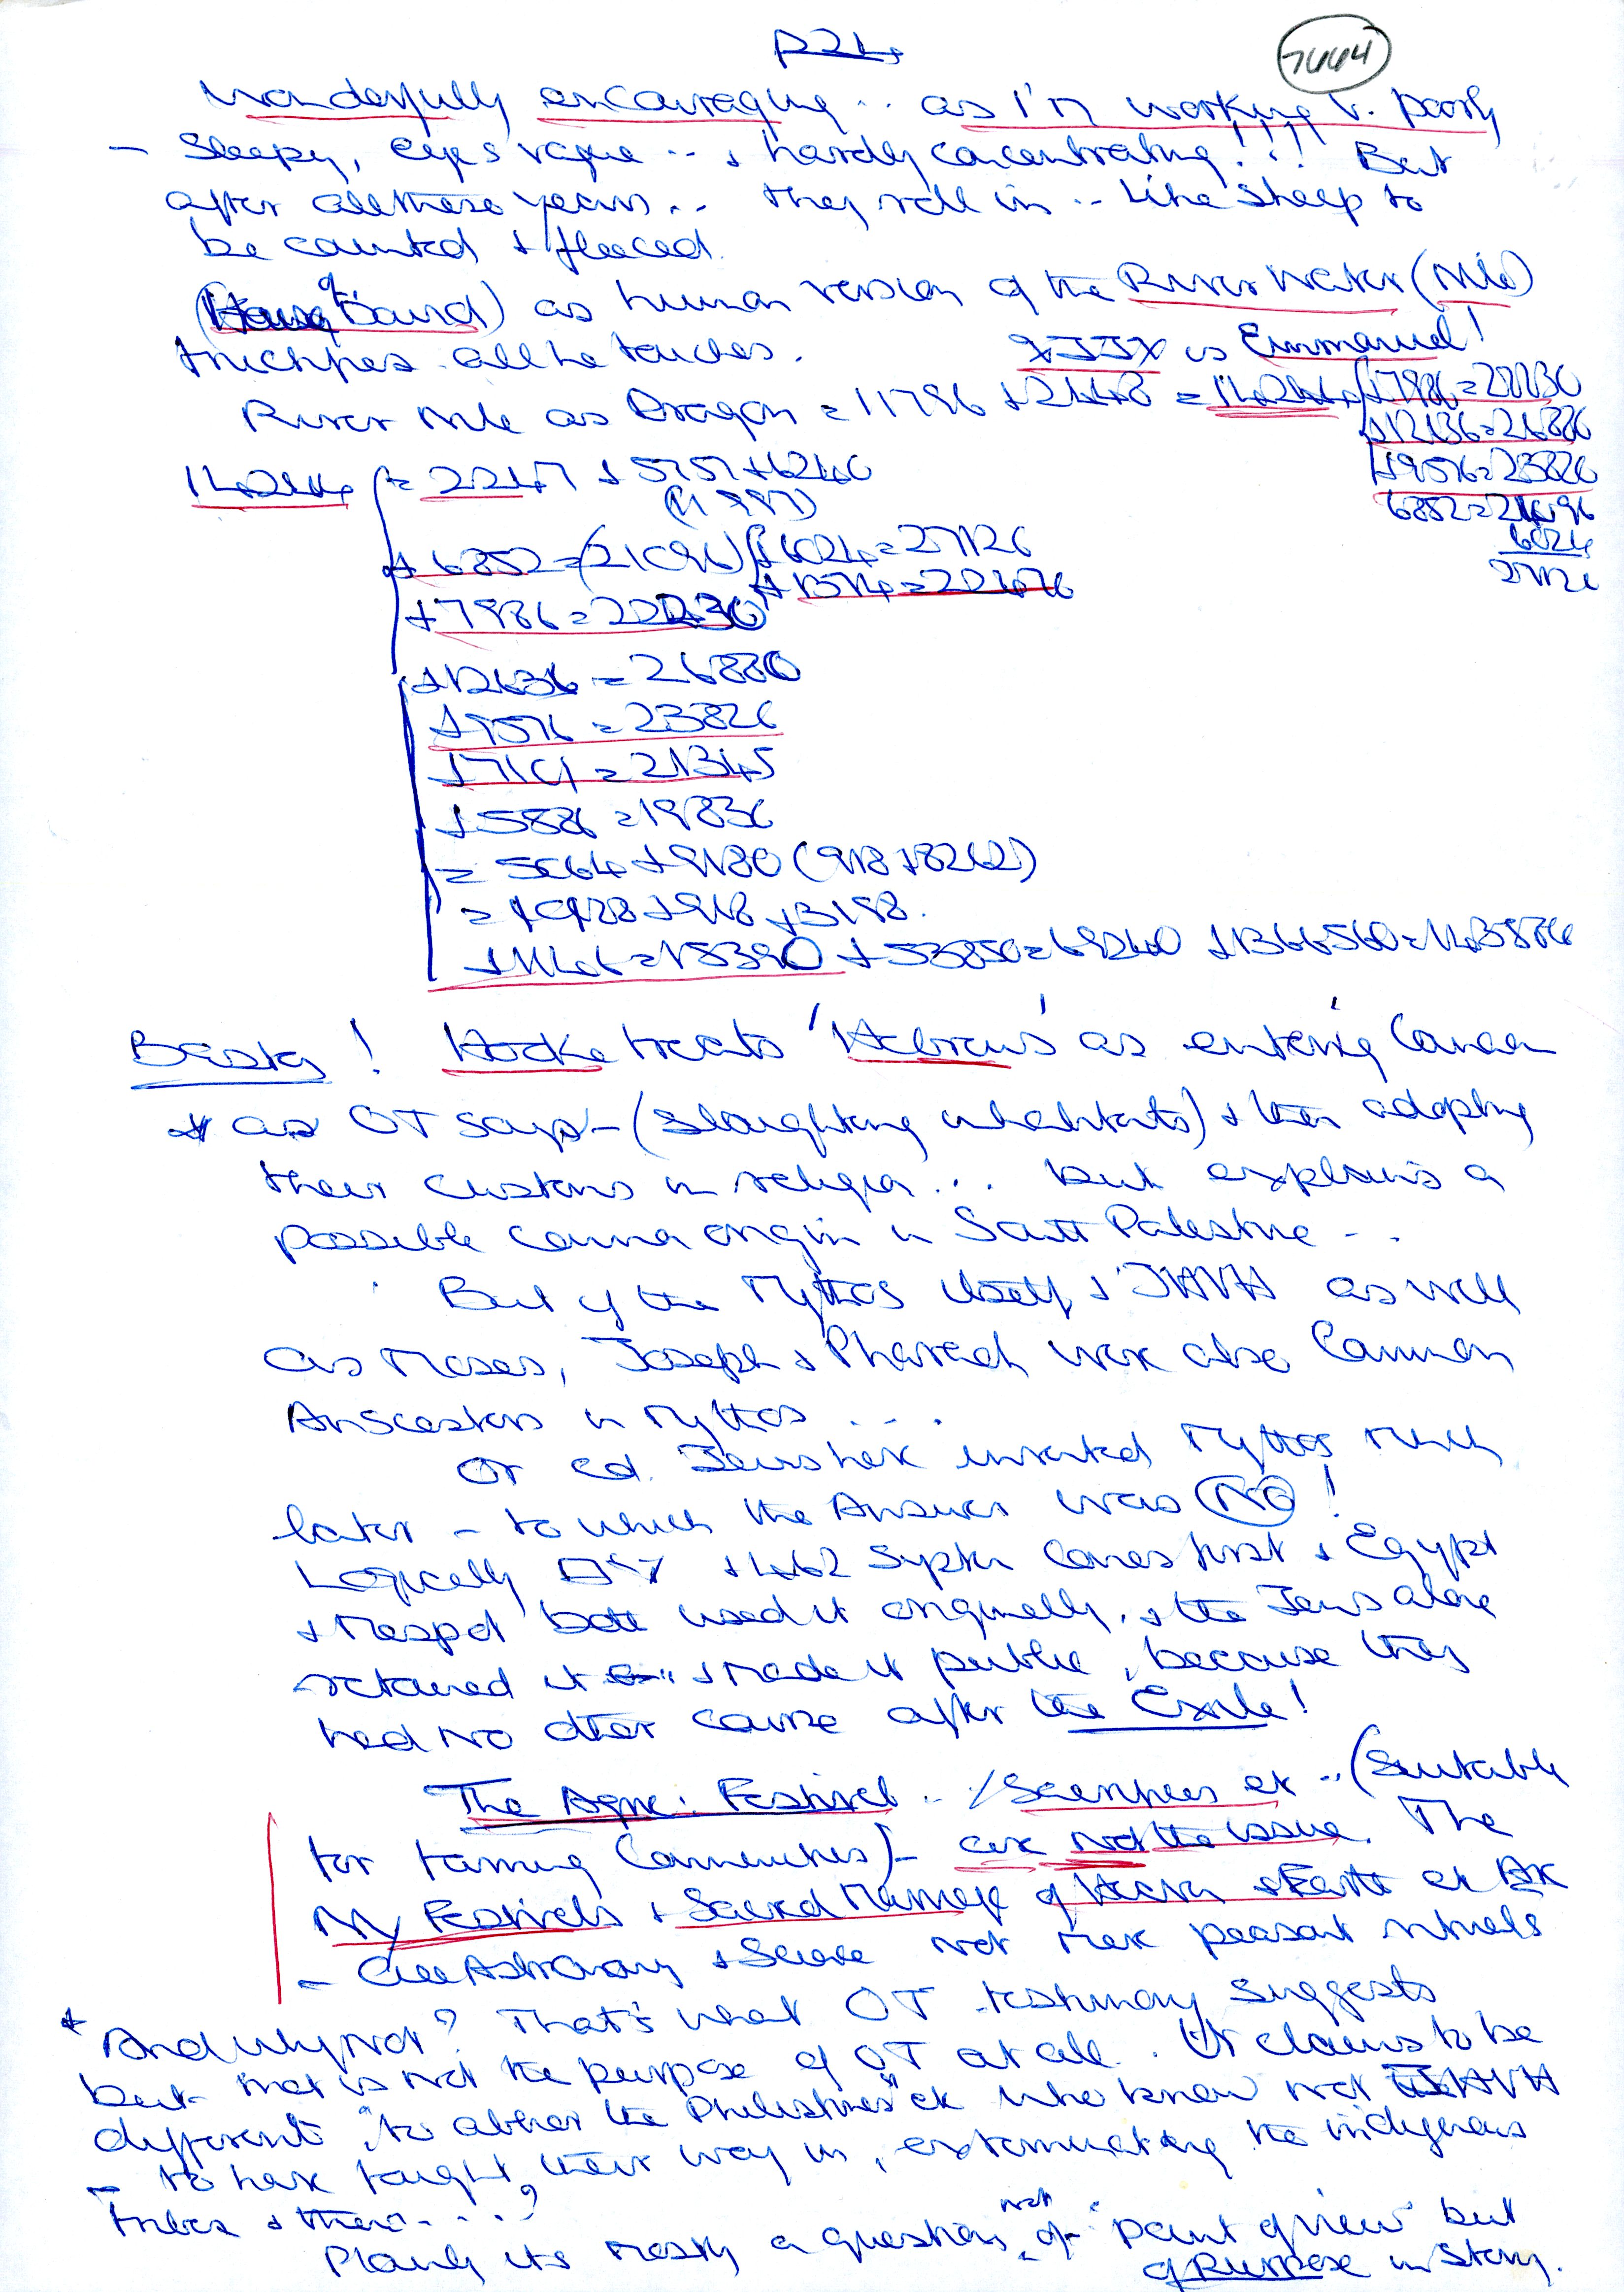 p24
7444
Wonderfully encouraging .. as I'm working v. poorly
- Sleepy, eyes vague .. + hardly concentrating!!!! But
after all these years .. they roll in .. like sheep to
be counted + fleeced.
(House of David) as human version of the River Water (Nile)
+ enriches all he touches. is Emmanuel!
River Nile as Dragon = 11796 + 2448 = 14244 + 7986 = 22230
+ 12636 = 26880
+ 9576 = 23820
6852 = 21096
6024
27120
14244 = 2247 + 5757 + 6240
+ 6852 = (21096) + 6024 = 27120
+ 7986 = 22230
+ 12636 = 26880
+ 9576 = 23820
+ 7101 = 21345
+ 5586 = 19830
= 5064 + 9180 (918 + 8262)
= 10128 + 918 + 3198.
+ 1146 = 15390 + 53850 = 69240
! Hooke treats 'Hebrews' as entering Canaan
* as OT says - (slaughtering inhabitants) + then adopting
their customs in religion ... but explains a
possible common origin in South Palestine ..
But if the Mythos itself + JHVH as well
as Moses, Joseph + Pharaoh were also Common
Anscestors in Mythos ...
Or cd. Jews have invented Mythos much
later - to which the Answer was NO!
Logically + 462 comes first + Egypt
+ Mespot both used it originally, + the Jews alone
retained it + made it public, because they
had no other course after the Exile!
The Agric. Festival .. / et .. (Suitable
for farming Communities) - are not the issue. The
NY Festivals + Sacred Marriage of Heaven + Earth et
- are Astronomy + not mere peasant rituals
* And why not? That's what OT testimony suggests
but that is not the purpose of OT at all. It claims to be
different to the "Philistines" et who knew not JHVH
- to have fought their way in, exterminating the indigenous
tribes + then ....?
Plainly its mostly a question not of 'point of view' but
of Purpose in Story.